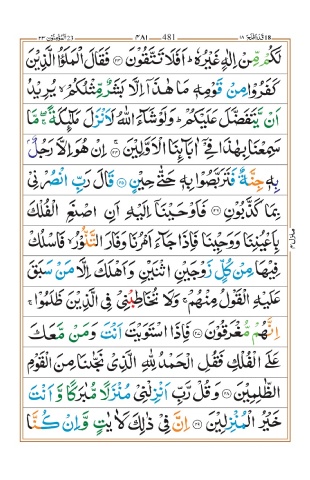 قد افلح ١٨ ٤٨١ 481 المؤمنون ٢٣
لَكُمْ مِّنْ اِلٰهٍ غَيْرُهٗ ؕ اَفَلَا تَتَّقُوْنَ ﴿۲۳﴾ فَقَالَ الْمَلَؤُا الَّذِيْنَ
كَفَرُوْا مِنْ قَوْمِهٖ مَا هٰذَاۤ اِلَّا بَشَرٌ مِّثْلُكُمْ ۙ يُرِيْدُ
اَنْ يَّتَفَضَّلَ عَلَيْكُمْ ؕ وَلَوْ شَآءَ اللّٰهُ لَاَنْزَلَ مَلٰٓئِكَةً ۖۚ مَّا
سَمِعْنَا بِهٰذَا فِيْۤ اٰبَآئِنَا الْاَوَّلِيْنَ ﴿۲۴﴾ اِنْ هُوَ اِلَّا رَجُلٌۢ
بِهٖ جِنَّةٌ فَتَرَبَّصُوْا بِهٖ حَتّٰى حِيْنٍ ﴿۲۵﴾ قَالَ رَبِّ انْصُرْنِيْ
بِمَا كَذَّبُوْنِ ﴿۲۶﴾ فَاَوْحَيْنَاۤ اِلَيْهِ اَنِ اصْنَعِ الْفُلْكَ
بِاَعْيُنِنَا وَوَحْيِنَا فَاِذَا جَآءَ اَمْرُنَا وَفَارَ التَّنُّوْرُ ۙ فَاسْلُكْ
فِيْهَا مِنْ كُلٍّ زَوْجَيْنِ اثْنَيْنِ وَاَهْلَكَ اِلَّا مَنْ سَبَقَ
عَلَيْهِ الْقَوْلُ مِنْهُمْ ۚ وَلَا تُخَاطِبْنِيْ فِى الَّذِيْنَ ظَلَمُوْا ۚ
اِنَّهُمْ مُّغْرَقُوْنَ ﴿۲۷﴾ فَاِذَا اسْتَوَيْتَ اَنْتَ وَمَنْ مَّعَكَ
عَلَى الْفُلْكِ فَقُلِ الْحَمْدُ لِلّٰهِ الَّذِيْ نَجّٰىنَا مِنَ الْقَوْمِ
الظّٰلِمِيْنَ ﴿۲۸﴾ وَقُلْ رَّبِّ اَنْزِلْنِيْ مُنْزَلًا مُّبٰرَكًا وَّاَنْتَ
خَيْرُ الْمُنْزِلِيْنَ ﴿۲۹﴾ اِنَّ فِيْ ذٰلِكَ لَاٰيٰتٍ وَّاِنْ كُنَّا